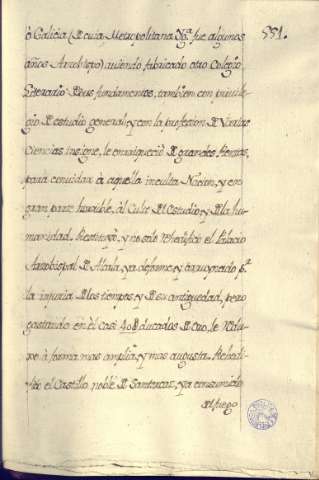 ò Galicia (de cuia Metropolitana Ygª. fue algunos
años Arzobispo), aviendo fabricado otro Colegio
Literario de sus fundamentos, tambien con privile-
gio de estudio general; y con la profesion de Varias
Ciencias insigne, le enriqueció de grandes Rentas,
para convidar à aquella inculta Nacion, y en
gran parte horrible, àl Culto del estudio, y de la hu-
manidad. Restituyò, y no solo Rehedifico el Palacio
Arzobispal de Alcala, ya deforme, y
la injuria de los tiempos, y de su antiguedad, pero
gastando en èl Casi 40 ducados de Oro, le
à forma mas amplia, y mas augusta. Rehedi-
ficò el Castillo noble de Santorcaz, ya consumido
del fuego
551.